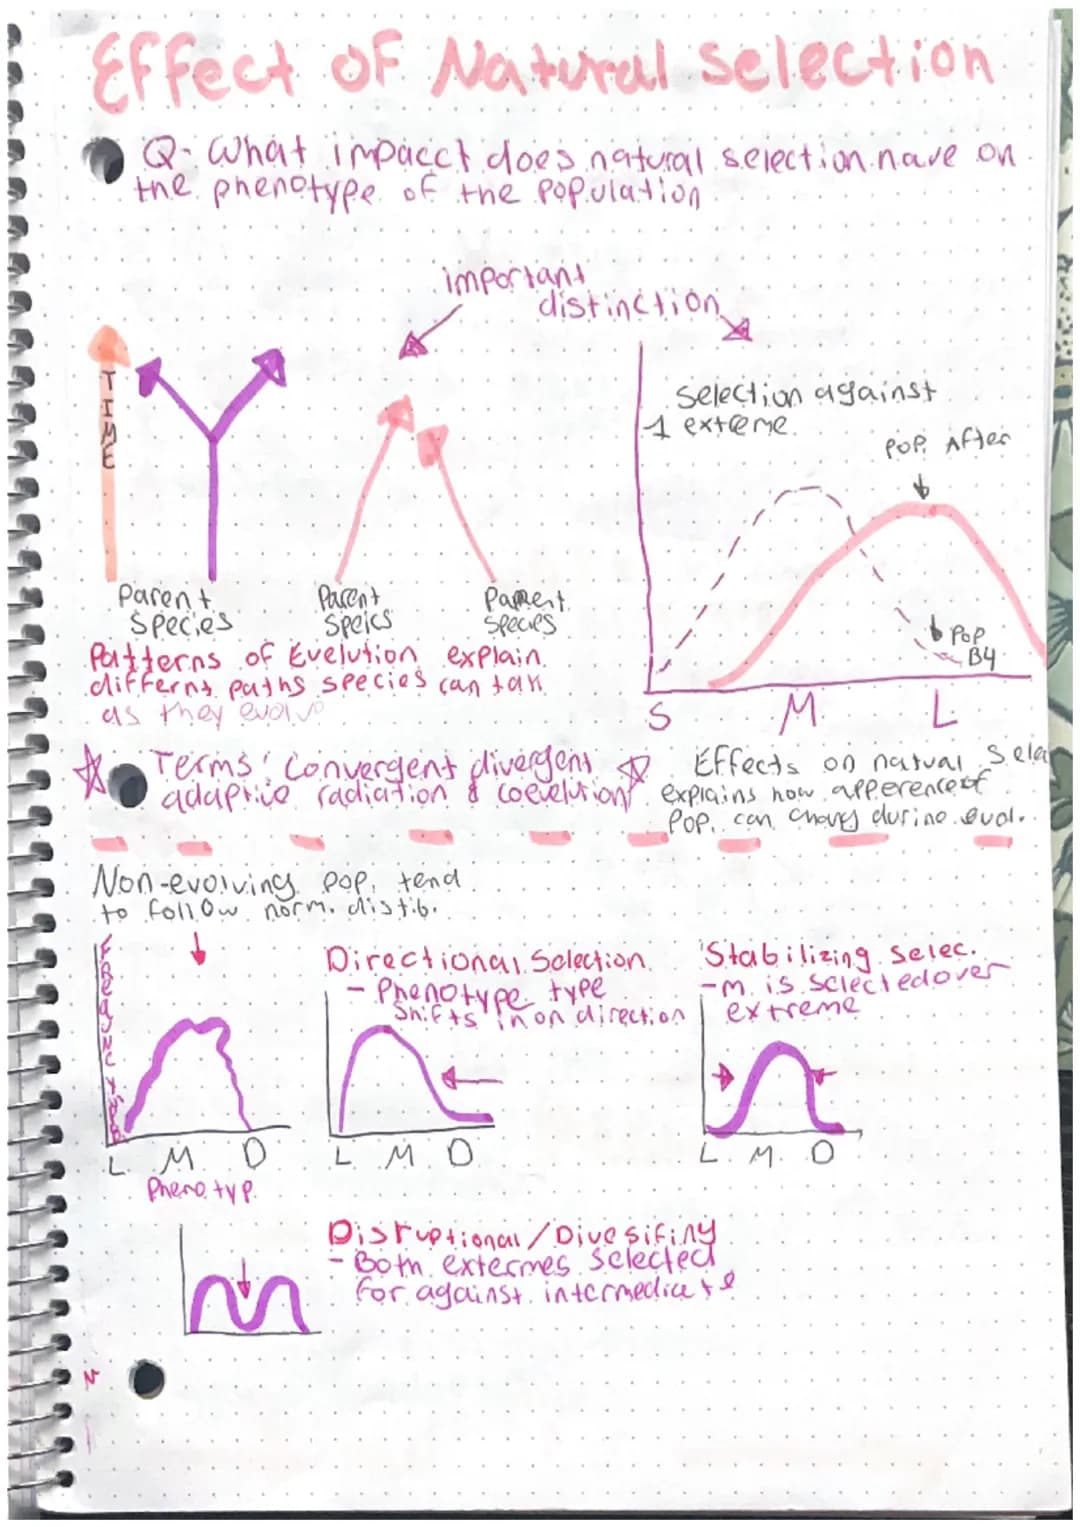 Effect of Natural Selection
Q- What impacct does natural selection have on
the phenotype of the population
important
distinction
TIME
Selection against
1 extreme
Pop. After
Parent
Species
Parent
Speics
Parent
Species
Pop
B4
S M L
Patterns of Evelution explain
differnt paths species can tak
as they evolv
Terms: Convergent divergent
adaptive radiation & coevelution
Effects on natual Selec
explains how apperence of
Pop. can during evol.
Non-evolving pop. tend
to follow norm. distib.
Directional Selection
- Phenotype type
shifts in on direction
Stabilizing Selec.
- m. is selected over
extreme
L M D
Pheno typ.
L M D
L M D
Disruptional / Divesifiny
- Both extermes selected
for against intermedicate